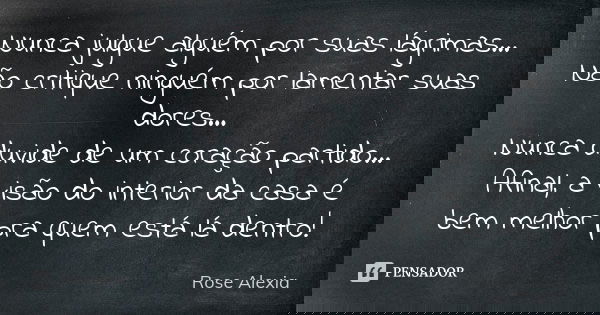 Nunca julgue alguém por suas lágrimas...
Não critique ninguém por lamentar suas
dores...
Nunca duvide de um coração partido...
Afinal, a visão do interior da casa é
bem melhor pra quem está lá dentro!
Rose Alexia
PENSADOR